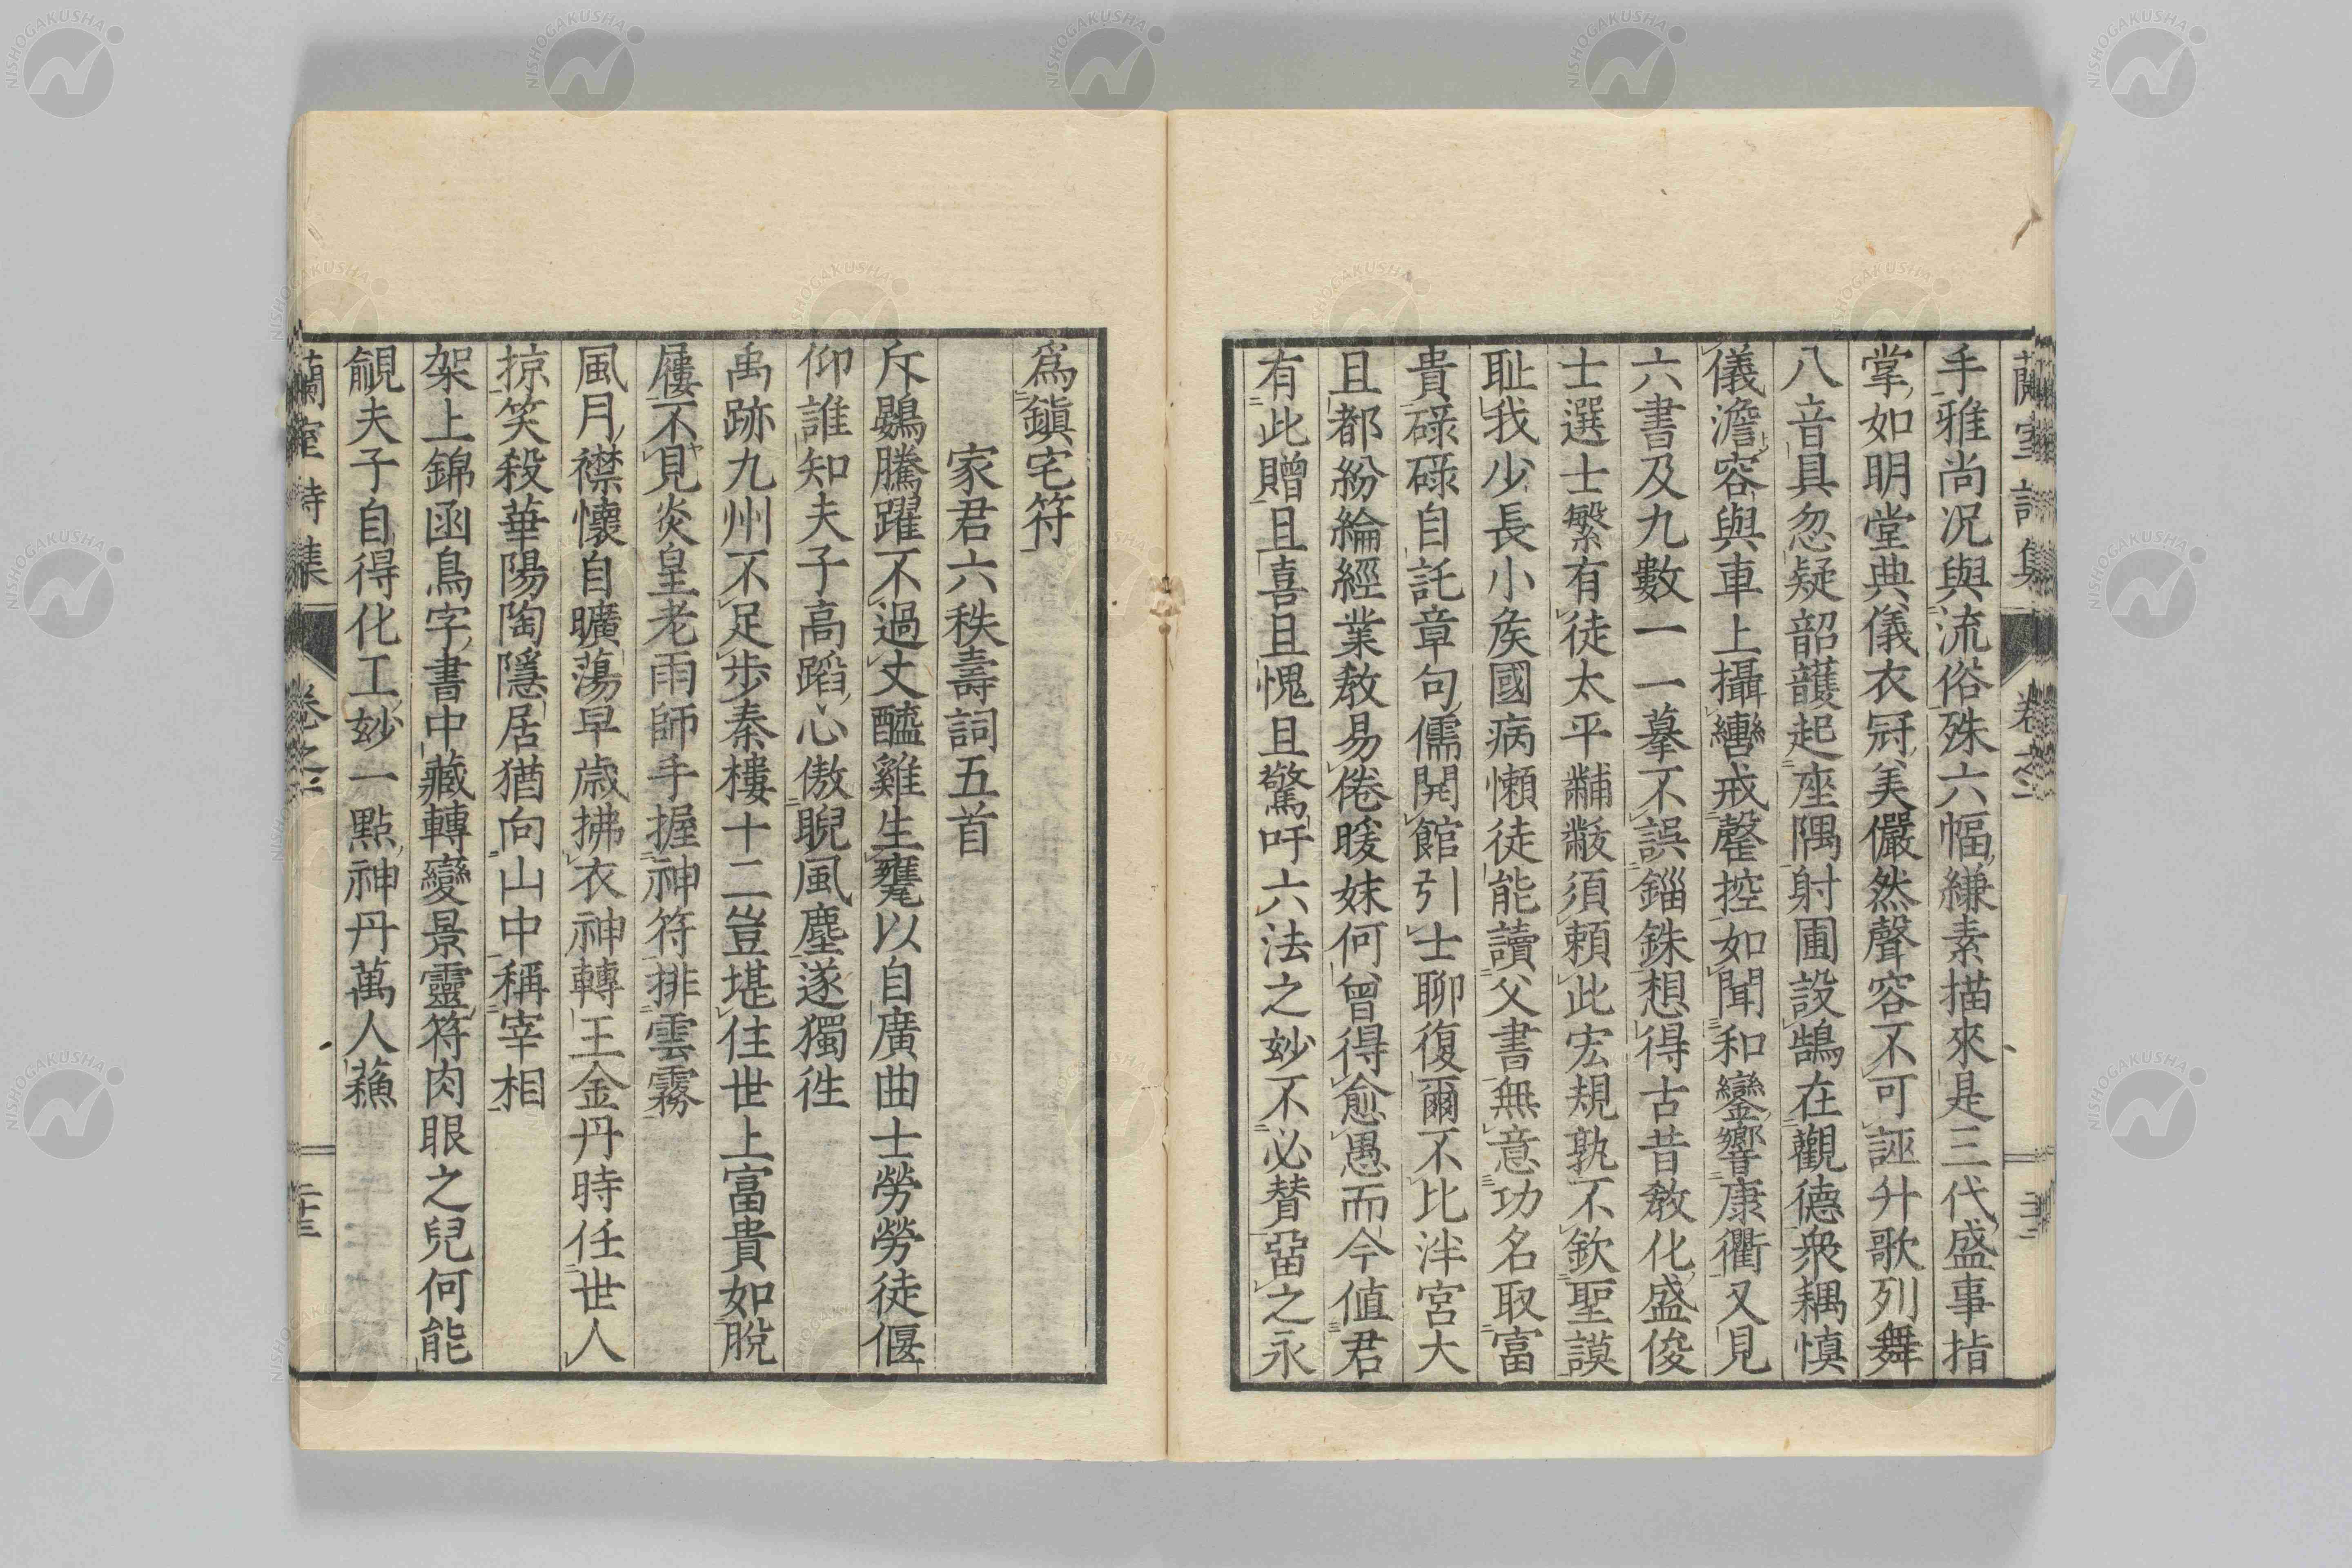 蘭室詩集 卷之二
手雅尚况與流俗殊六幅縑素描來是三代盛事指
掌如明堂典儀衣冠美儼然聲容不可誣升歌列舞
八音具忽疑韶護起座隅射圃設鵠在觀德衆耦慎
儀澹容與車上攝轡戒罄控如聞和鑾響康衢又見
六書及九數一一摹不誤錙銖想得古昔教化盛俊
士選士繁有徒太平黼黻須賴此宏規孰不欽聖謨
耻我少長小矦國病懶徒能讀父書無意功名取富
貴碌碌自託章句儒開館引士聊復爾不比泮宮大
且都紛綸經業敖易倦暖姝何曾得愈愚而今値君
有此贈且喜且愧且驚吁六法之妙不必賛畱之永
爲鎭宅符
家君六秩壽詞五首
斥鷃騰躍不過丈醯雞生甕以自廣曲士勞勞徒偃
仰誰知夫子高蹈心傲睨風塵遂獨徃
禹跡九州不足步秦樓十二豈堪住世上富貴如脫
屨不見炎皇老雨師手握神符排雲霧
風月襟懷自曠蕩早歳拂衣神轉王金丹時任世人
掠笑殺華陽陶隱居猶向山中稱宰相
架上錦函鳥字書中藏轉變景靈符肉眼之兒何能
覦夫子自得化工妙一點神丹萬人蘓
蘭室詩集 卷之二 二十三
NISHOGAKUSHA
NISHOGAKUSHA
NISHOGAKUSHA
NISHOGAKUSHA
NISHOGAKUSHA